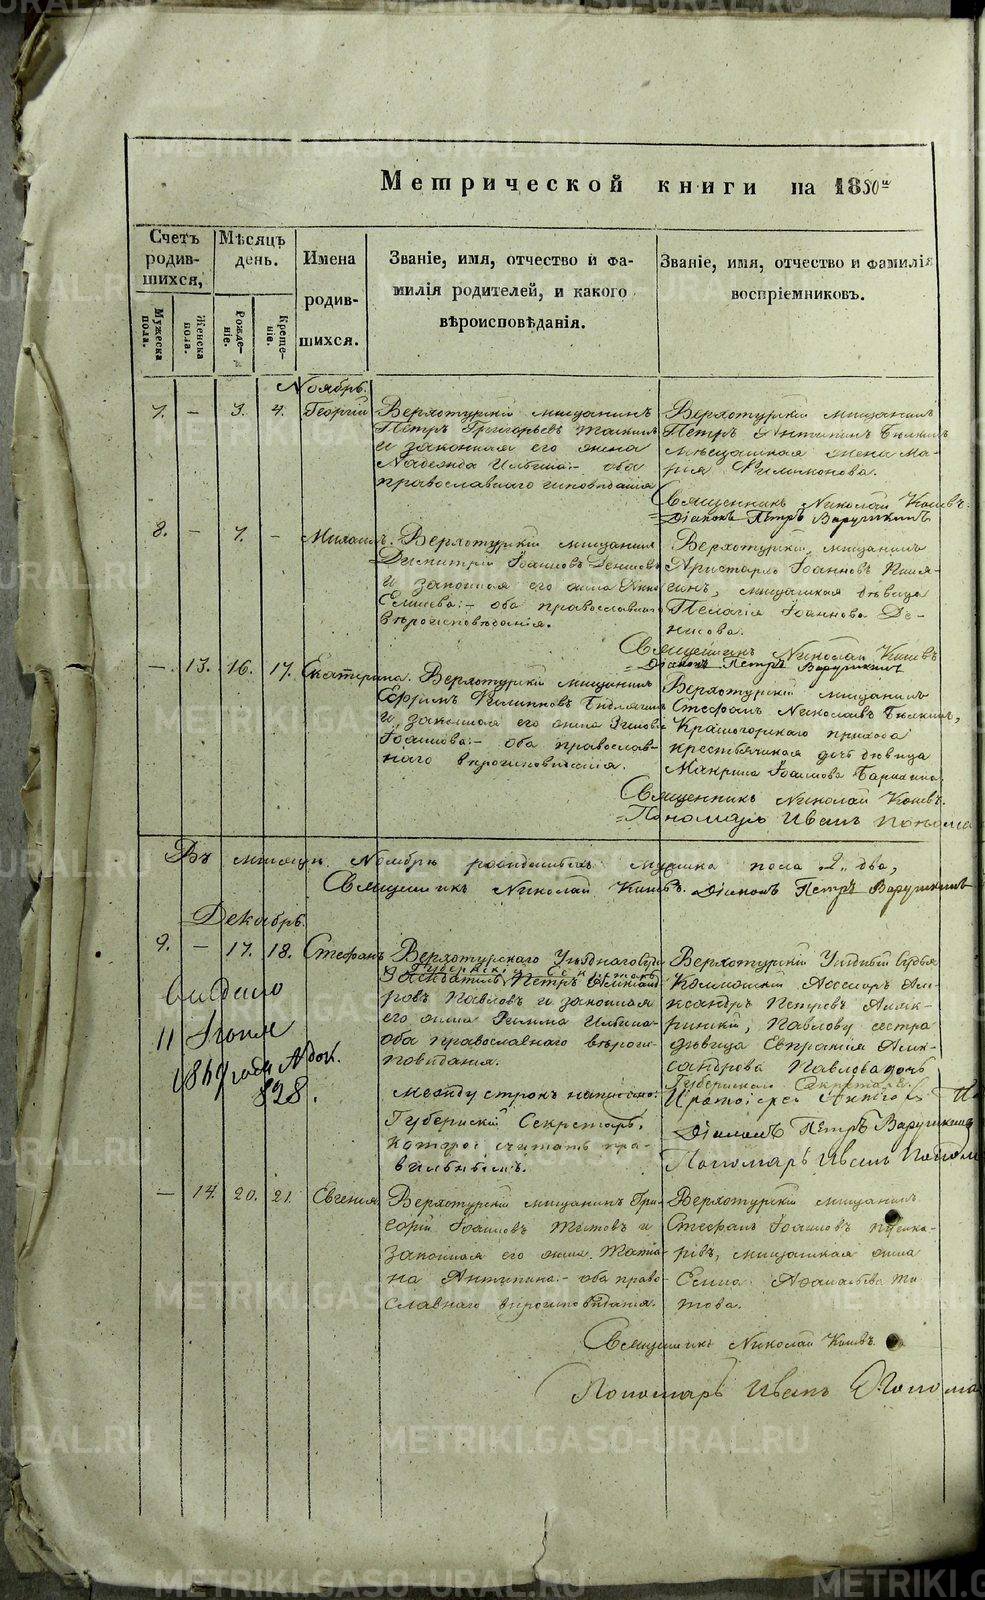 Метрической книги на 1850й
Счетъ родив-шихся,
Мужеска пола.
Женска пола.
Мѣсяцъ день.
Рожде-ніе.
Креще-ніе.
Имена родив-шихся.
Званіе, имя, отчество и фа-
милія родителей, и какого
вѣроисповѣданія.
Званіе, имя, отчество и фамилія
воспріемниковъ.
Ноябрь.
7. — 3. 4. Георгій
Верхотурскій мѣщанинъ
Петръ Григорьевъ
и законная его жена
Надежда Ильина:- оба
православнаго исповѣданія
Верхотурскій мѣщанинъ
Петръ
мѣщанская жена Ма-
рія Филимонова.
Священникъ Николай
Діаконъ Петръ Варушкинъ
8. — 7. — Михаилъ.
Верхотурскій мѣщанинъ
Димитрій Іоанновъ Денисовъ
и законная его жена Анна
оба православнаго
вѣроисповѣданія.
Верхотурскій мѣщанинъ
Аристархъ Іоанновъ
мѣщанская дѣвица
Пелагія Іоаннова Де-
нисова.
Священникъ Николай
Діаконъ Петръ Варушкинъ
— 13. 16. 17. Екатерина.
Верхотурскій мѣщанинъ
Ефремъ Филипповъ
и законная его жена
Іоаннова:- оба православ-
наго вѣроисповѣданія.
Верхотурскій мѣщанинъ
Стефанъ Николаевъ
Красногорскаго прихода
крестьянская дочь дѣвица
Макрина Іоаннова
Священникъ Николай
Пономарь Иванъ
Въ мѣсяцѣ Ноябрѣ родившихся мужска пола 2, два,
Священникъ Николай Діаконъ Петръ Варушкинъ
Декабрь.
9. — 17. 18. Стефанъ
Верхотурскаго Уѣзднаго Суда
Губернскій Секретарь
Петръ Александ-
ровъ Павловъ и законная
его жена Римма Ильина-
оба православнаго вѣроис-
повѣданія.
Между строкъ написано:
Губернскій Секретарь,
которое считать пра-
вильнымъ.
Верхотурскій Уѣздный Судья
Коллежскій Ассесоръ Але-
ксандръ Петровъ
Павлову сестра
дѣвица Евпраксія Алек-
сандрова Павлова дочь
Губернскаго Секретаря
Протоіерей
Діаконъ Петръ Варушкинъ
Пономарь Иванъ
Выдано
11 Іюня
1869 года № док.
828.
— 14. 20. 21. Евгенія
Верхотурскій мѣщанинъ Гри-
горій Іоанновъ Титовъ и
законная его жена Татіа-
на Антипина:- оба право-
славнаго вѣроисповѣданія.
Верхотурскій мѣщанинъ
Стефанъ Іоанновъ
мѣщанская жена
Аѳанасьева Ти-
това.
Священникъ Николай
Пономарь Иванъ
METRIKI.GASO-URAL.RU